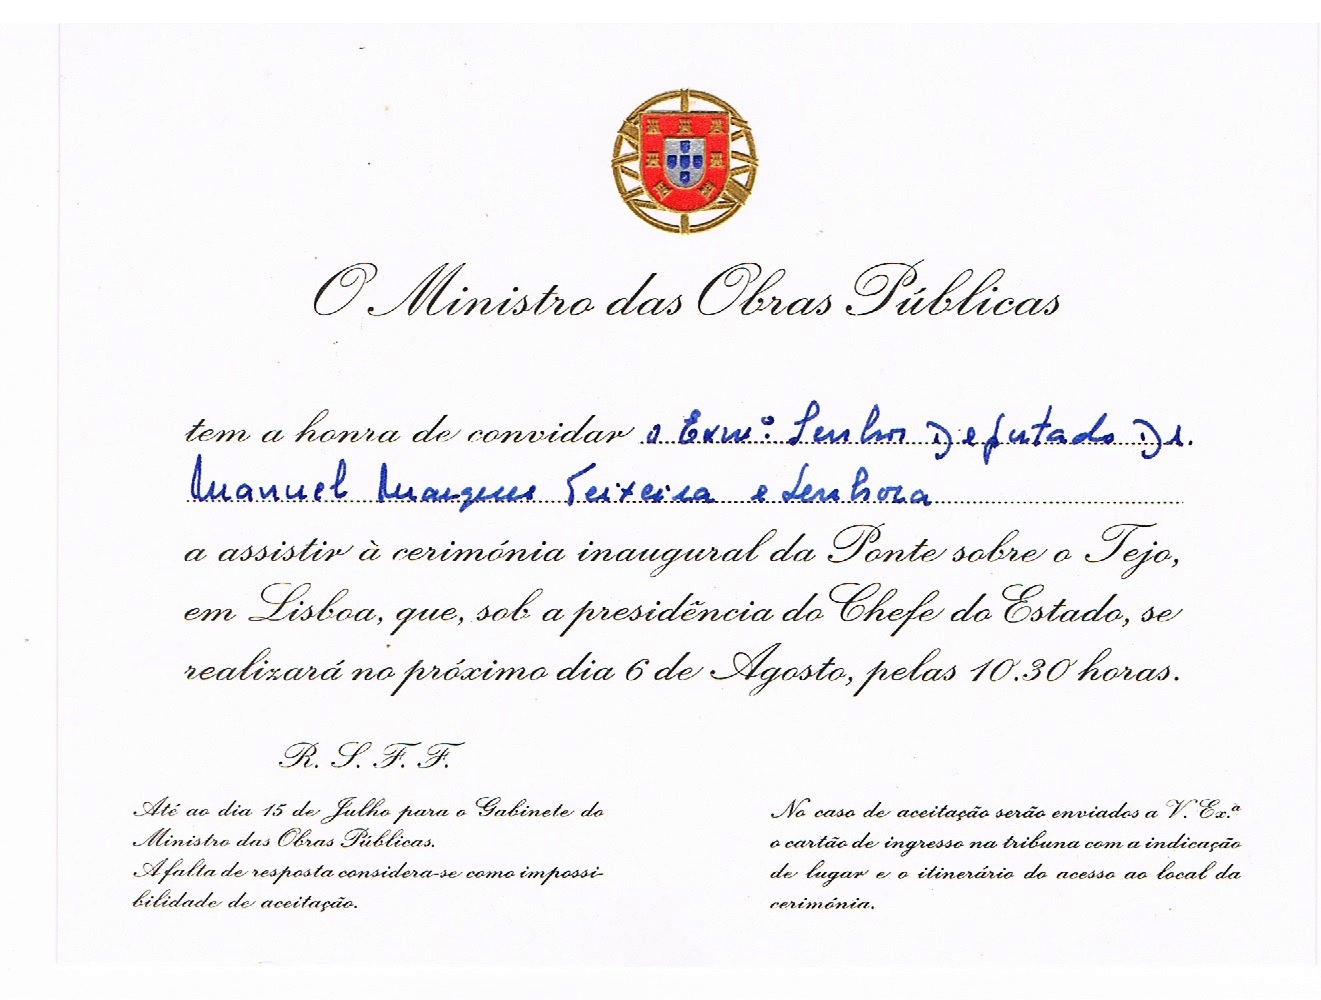 O Ministro das Obras Públicas
tem a honra de convidar o Exmº. Senhor Deputado Dr.
Manuel Marques Teixeira e Senhora
a assistir à cerimónia inaugural da Ponte sobre o Tejo,
em Lisboa, que, sob a presidência do Chefe do Estado, se
realizará no próximo dia 6 de Agosto, pelas 10.30 horas.
R. S. F. F.
Até ao dia 15 de Julho para o Gabinete do
Ministro das Obras Públicas.
A falta de resposta considera-se como impossi-
bilidade de aceitação.
No caso de aceitação serão enviados a V. Ex.ª
o cartão de ingresso na tribuna com a indicação
de lugar e o itinerário do acesso ao local da
cerimónia.